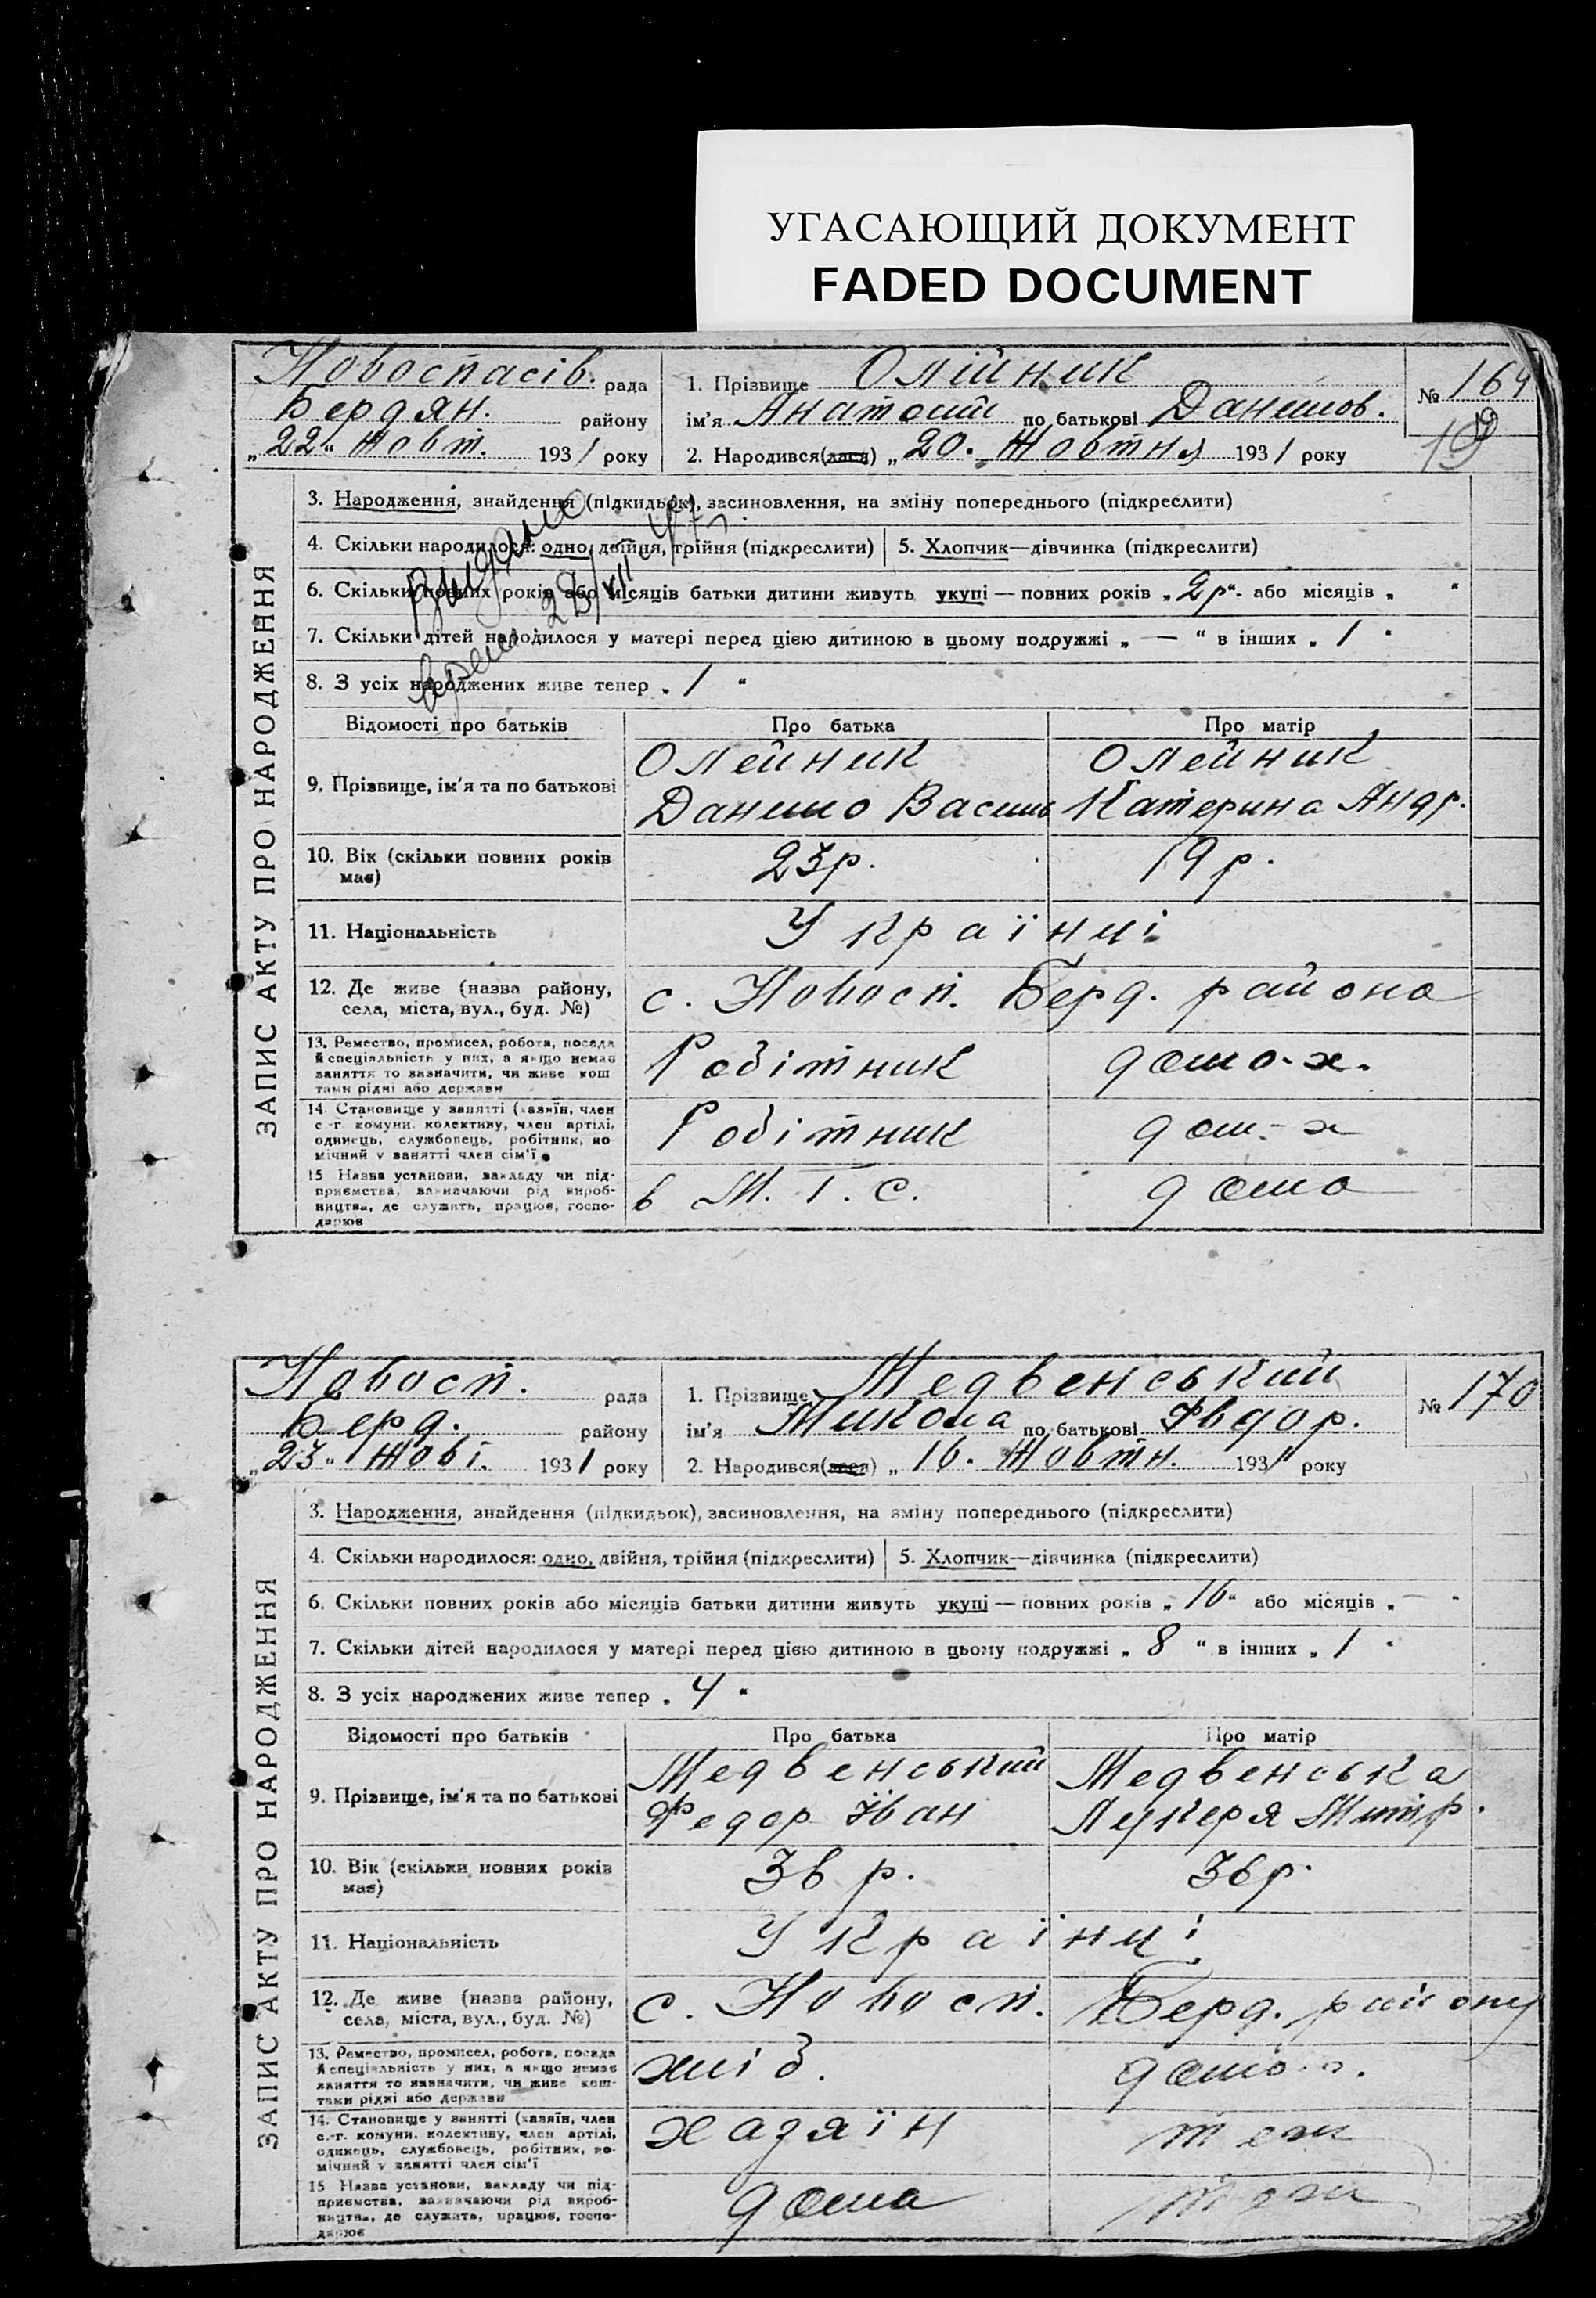 УГАСАЮЩИЙ ДОКУМЕНТ
FADED DOCUMENT
ЗАПИС АКТУ ПРО НАРОДЖЕННЯ
Новоспасів. рада
Бердян. району
„22“ Жовт. 1931 року
1. Прізвище Олійник
ім'я Анатолий по батькові Данилов.
2. Народився(лася) „20. Жовтня 1931 року
№ 164
19
3. Народження, знайдення (підкидьок), засиновлення, на зміну попереднього (підкреслити)
4. Скільки народилося: одно, двійня, трійня (підкреслити) 5. Хлопчик—дівчинка (підкреслити)
6. Скільки повних років або місяців батьки дитини живуть укупі — повних років „2р“. або місяців „ “
7. Скільки дітей народилося у матері перед цією дитиною в цьому подружжі „ — “ в інших „ 1 “
8. З усіх народжених живе тепер „ 1 “
Видано
28/XII 47
Відомості про батьків Про батька Про матір
9. Прізвище, ім'я та по батькові
Олейник
Данило Василь
Олейник
Катерина Андр.
10. Вік (скільки повних років має) 23р. 19 р.
11. Національність Українці
12. Де живе (назва району, села, міста, вул., буд. №) с. Новосп. Берд. района
13. Ремество, промисел, робота, посада й спеціяльність у них, а якщо немає заняття то зазначити, чи живе коштами рідні або держави Робітник дома-х.
14. Становище у занятті (хазяїн, член с.-г. комуни, колективу, член артілі, одинець, службовець, робітник, помічний у занятті член сім'ї Робітник дом.-х
15 Назва установи, закладу чи підприємства, зазначаючи рід виробництва, де служить, працює, господарює в М. Т. С. дома
ЗАПИС АКТУ ПРО НАРОДЖЕННЯ
Новосп. рада
Берд. району
„23“ Жовт. 1931 року
1. Прізвище Медвенський
ім'я Микола по батькові Фвдор.
2. Народився(лася) „16. Жовтн. 1931 року
№ 170
3. Народження, знайдення (підкидьок), засиновлення, на зміну попереднього (підкреслити)
4. Скільки народилося: одно, двійня, трійня (підкреслити) 5. Хлопчик—дівчинка (підкреслити)
6. Скільки повних років або місяців батьки дитини живуть укупі — повних років „ 16“ або місяців „ — “
7. Скільки дітей народилося у матері перед цією дитиною в цьому подружжі „ 8 “ в інших „ 1 “
8. З усіх народжених живе тепер „ 4 “
Відомості про батьків Про батька Про матір
9. Прізвище, ім'я та по батькові
Медвенський
Федор Іван
Медвенська
Лукеря Митр.
10. Вік (скільки повних років має) 36 р. 36р.
11. Національність Українці
12. Де живе (назва району, села, міста, вул., буд. №) с. Новосп. Берд. району
13. Ремество, промисел, робота, посада й спеціяльність у них, а якщо немає заняття то зазначити, чи живе коштами рідні або держави хліб.
14. Становище у занятті (хазяїн, член с.-г. комуни, колективу, член артілі, одинець, службовець, робітник, помічний у занятті член сім'ї хазяїн теж
15 Назва установи, закладу чи підприємства, зазначаючи рід виробництва, де служить, працює, господарює дома теж